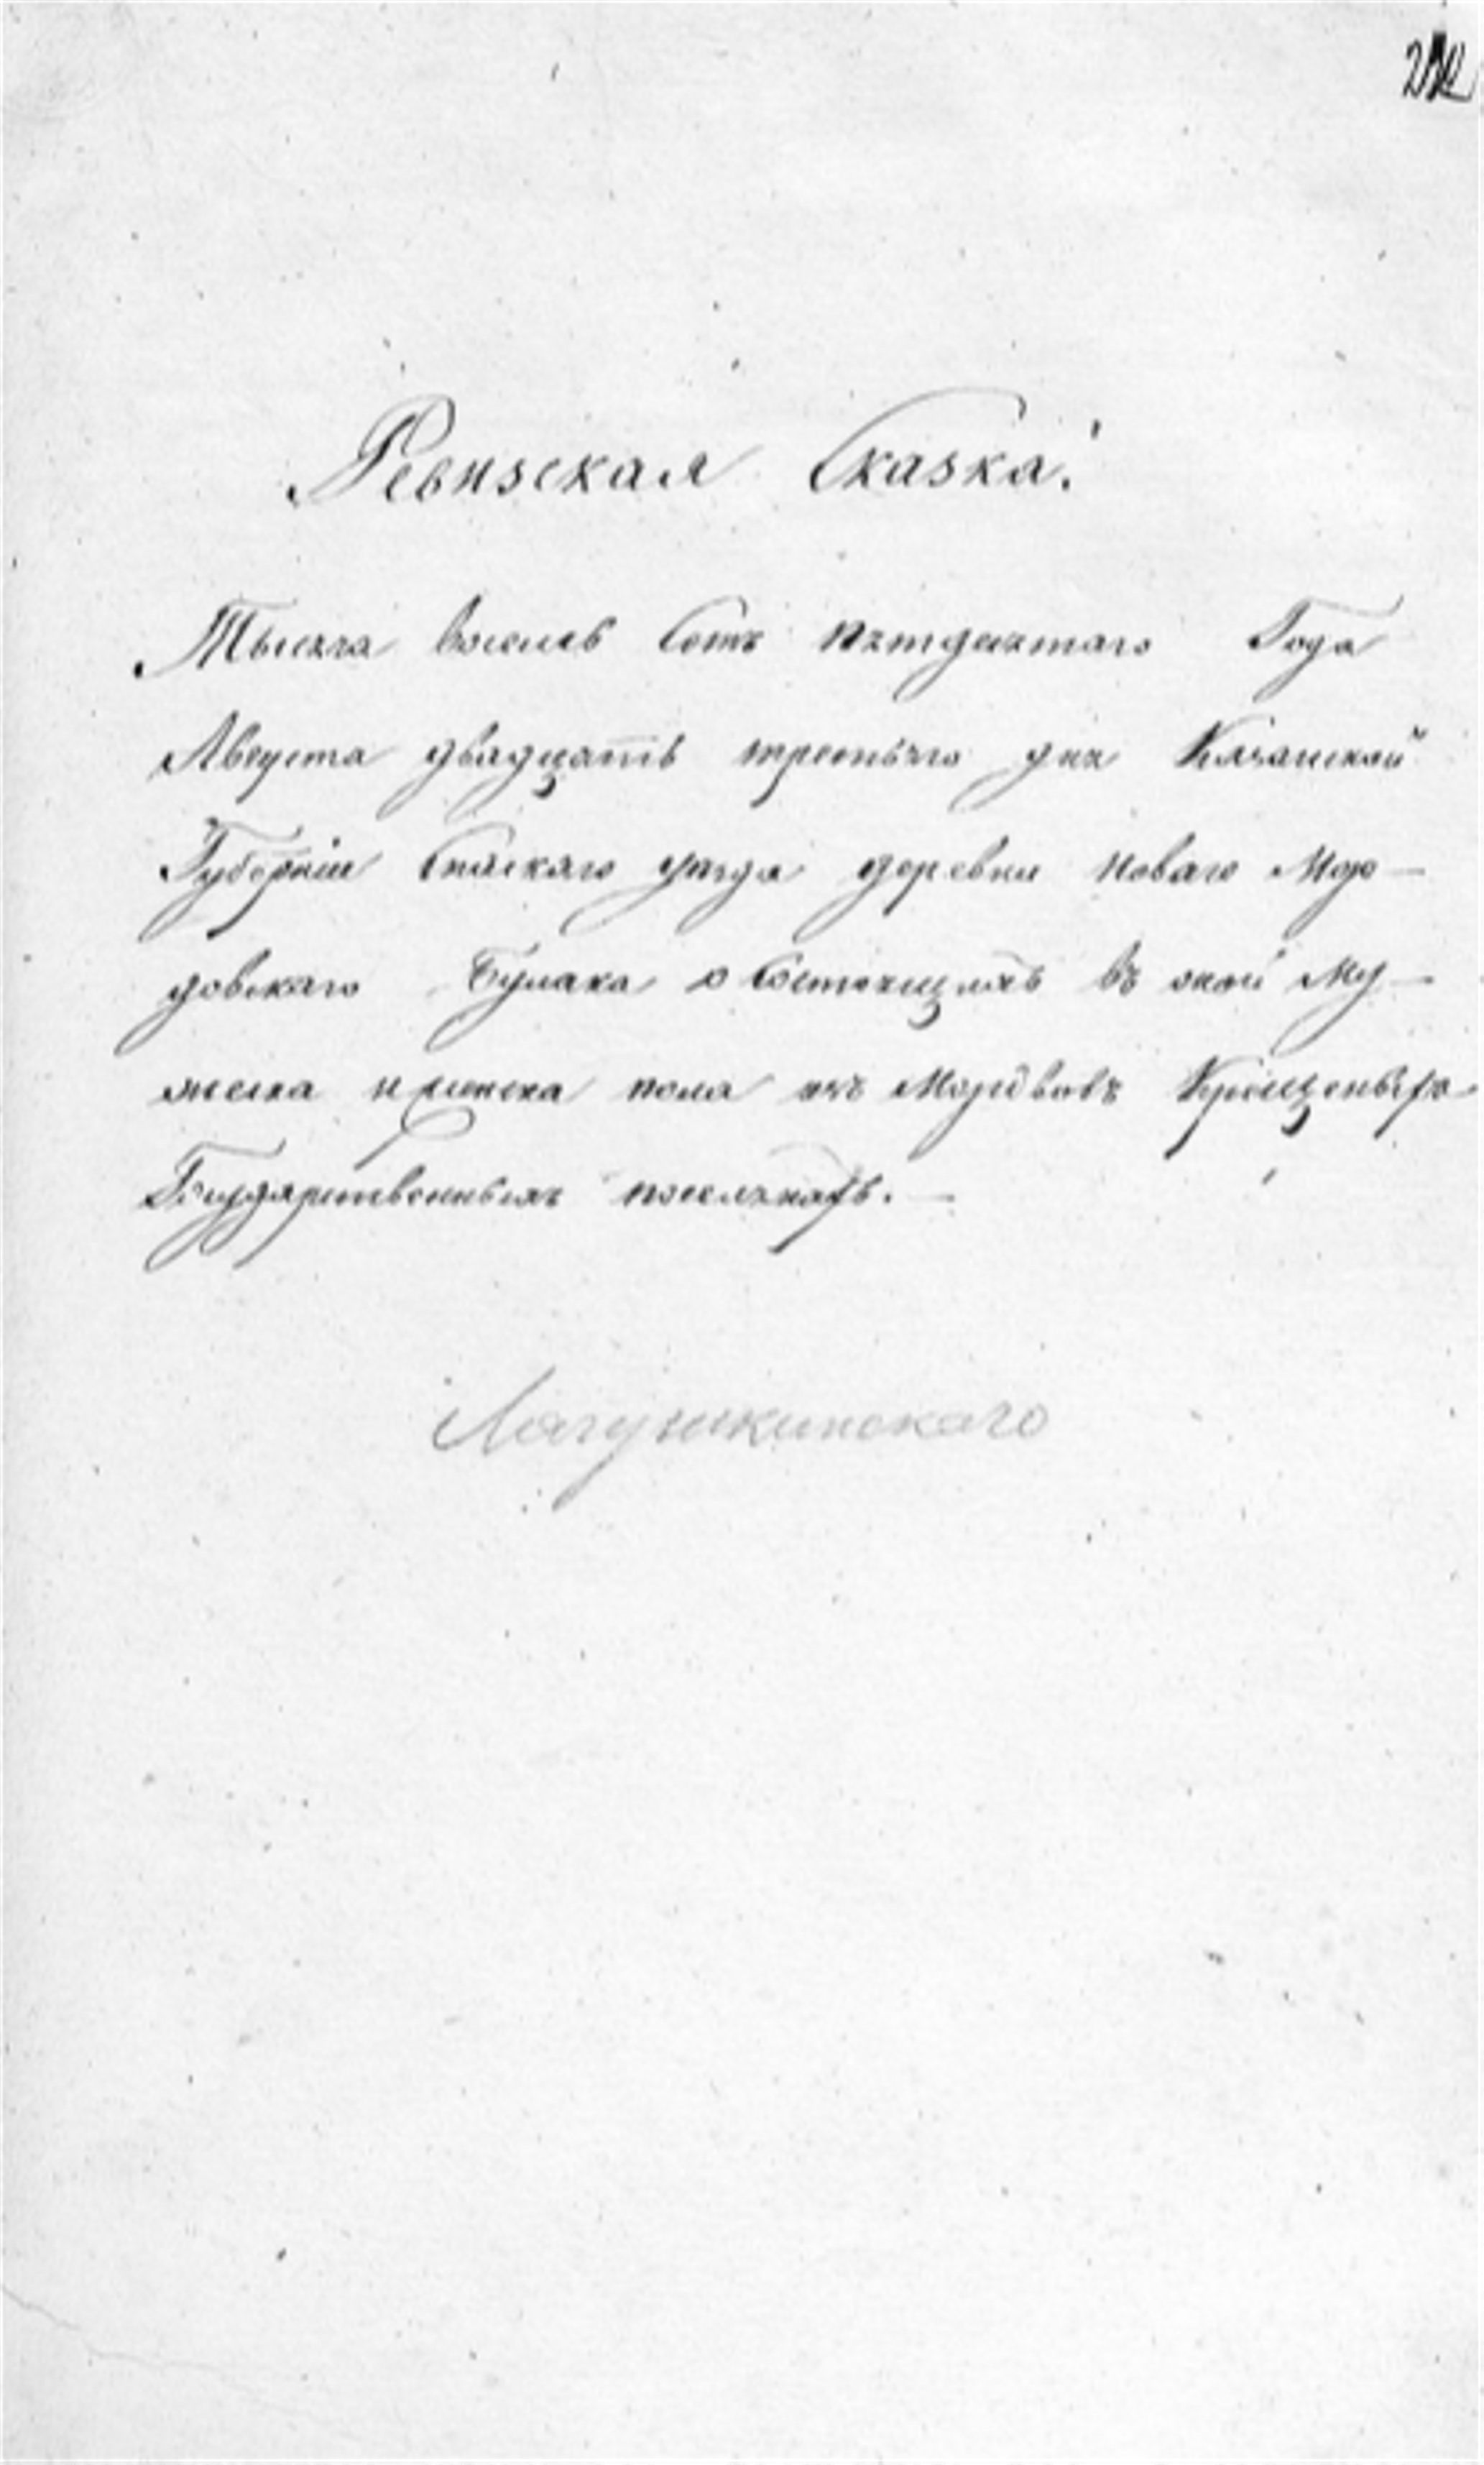 Ревизская Сказка.
Тысяча восемь Сотъ пятдесятаго Года
Августа двадцать третьяго дня Казанской
Губерніи Спаскаго уезда деревни Новаго Мор-
довскаго Булака о Состоящихъ въ оной Му-
жеска и женска пола изъ Мордвовъ Крещеныхъ
Государственныхъ поселянахъ.
Лягушкинскаго